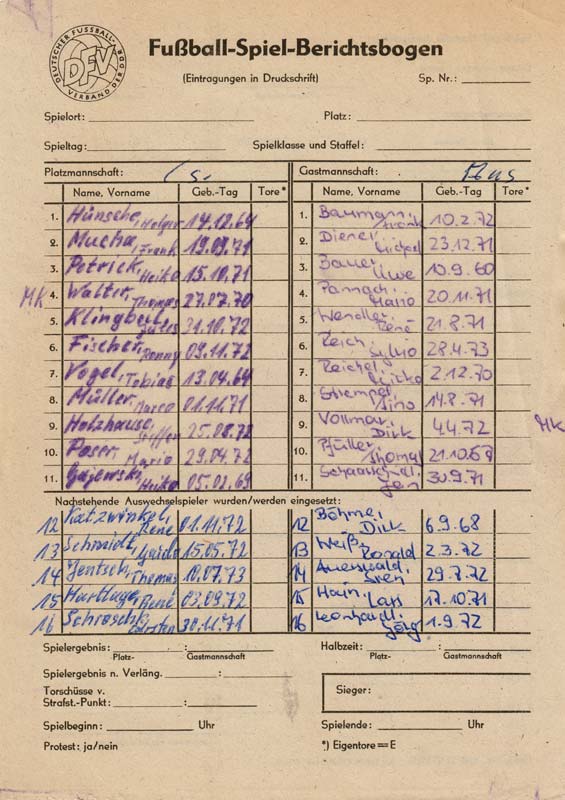 DEUTSCHER FUSSBALL-VERBAND DER DDR
DFV
Fußball-Spiel-Berichtsbogen
(Eintragungen in Druckschrift) Sp. Nr.:
Spielort: Platz:
Spieltag: Spielklasse und Staffel:
Platzmannschaft: Gastmannschaft:
Name, Vorname Geb.-Tag Tore* Name, Vorname Geb.-Tag Tore*
1. Hünsche, Holger 14.12.64 1. Baumann, Frank 10.2.72
2. Mucha, Frank 19.09.71 2. Diener, Michael 23.12.71
3. Petrick, Heiko 15.10.71 3. Bauer, Uwe 10.9.60
MK 4. Walter, Thomas 27.07.70 4. Pannach, Mario 20.11.71
5. Klingbeil, 31.10.72 5. Wendler, René 21.8.71
6. Fischer, Ronny 09.11.72 6. Reich, Sylvio 28.4.73
7. Vogel, Tobias 13.04.64 7. Reichel, 2.12.70
8. Müller, Marco 01.11.71 8. Strempel, Tino 14.8.71
9. Holzhause, Steffen 25.08.72 9. Vollmar, Dirk 4.4.72 MK
10. Poser, Mario 29.04.72 10. Pfüller, Thomas 21.10.69
11. Gajewski, Heiko 05.02.69 11. Jen 30.9.71
Nachstehende Auswechselspieler wurden/werden eingesetzt:
12 Katzwinkel, René 01.11.72 12 Böhme, Dirk 6.9.68
13 Schmidt, Guido 15.05.72 13 Weiß, Ronald 2.3.72
14 Jentsch, Thomas 10.07.73 14 Auerswald, Sven 29.7.72
15 Hartlage, René 03.09.72 15 Hain, Lars 17.10.71
16 Schrosch, Carsten 30.11.71 16 Leonhardt, Jörg 1.9.72
Spielergebnis: : Halbzeit: :
Platz- Gastmannschaft Platz- Gastmannschaft
Spielergebnis n. Verläng. :
Torschüsse v.
Strafst.-Punkt: : Sieger:
Spielbeginn: Uhr Spielende: Uhr
Protest: ja/nein *) Eigentore = E